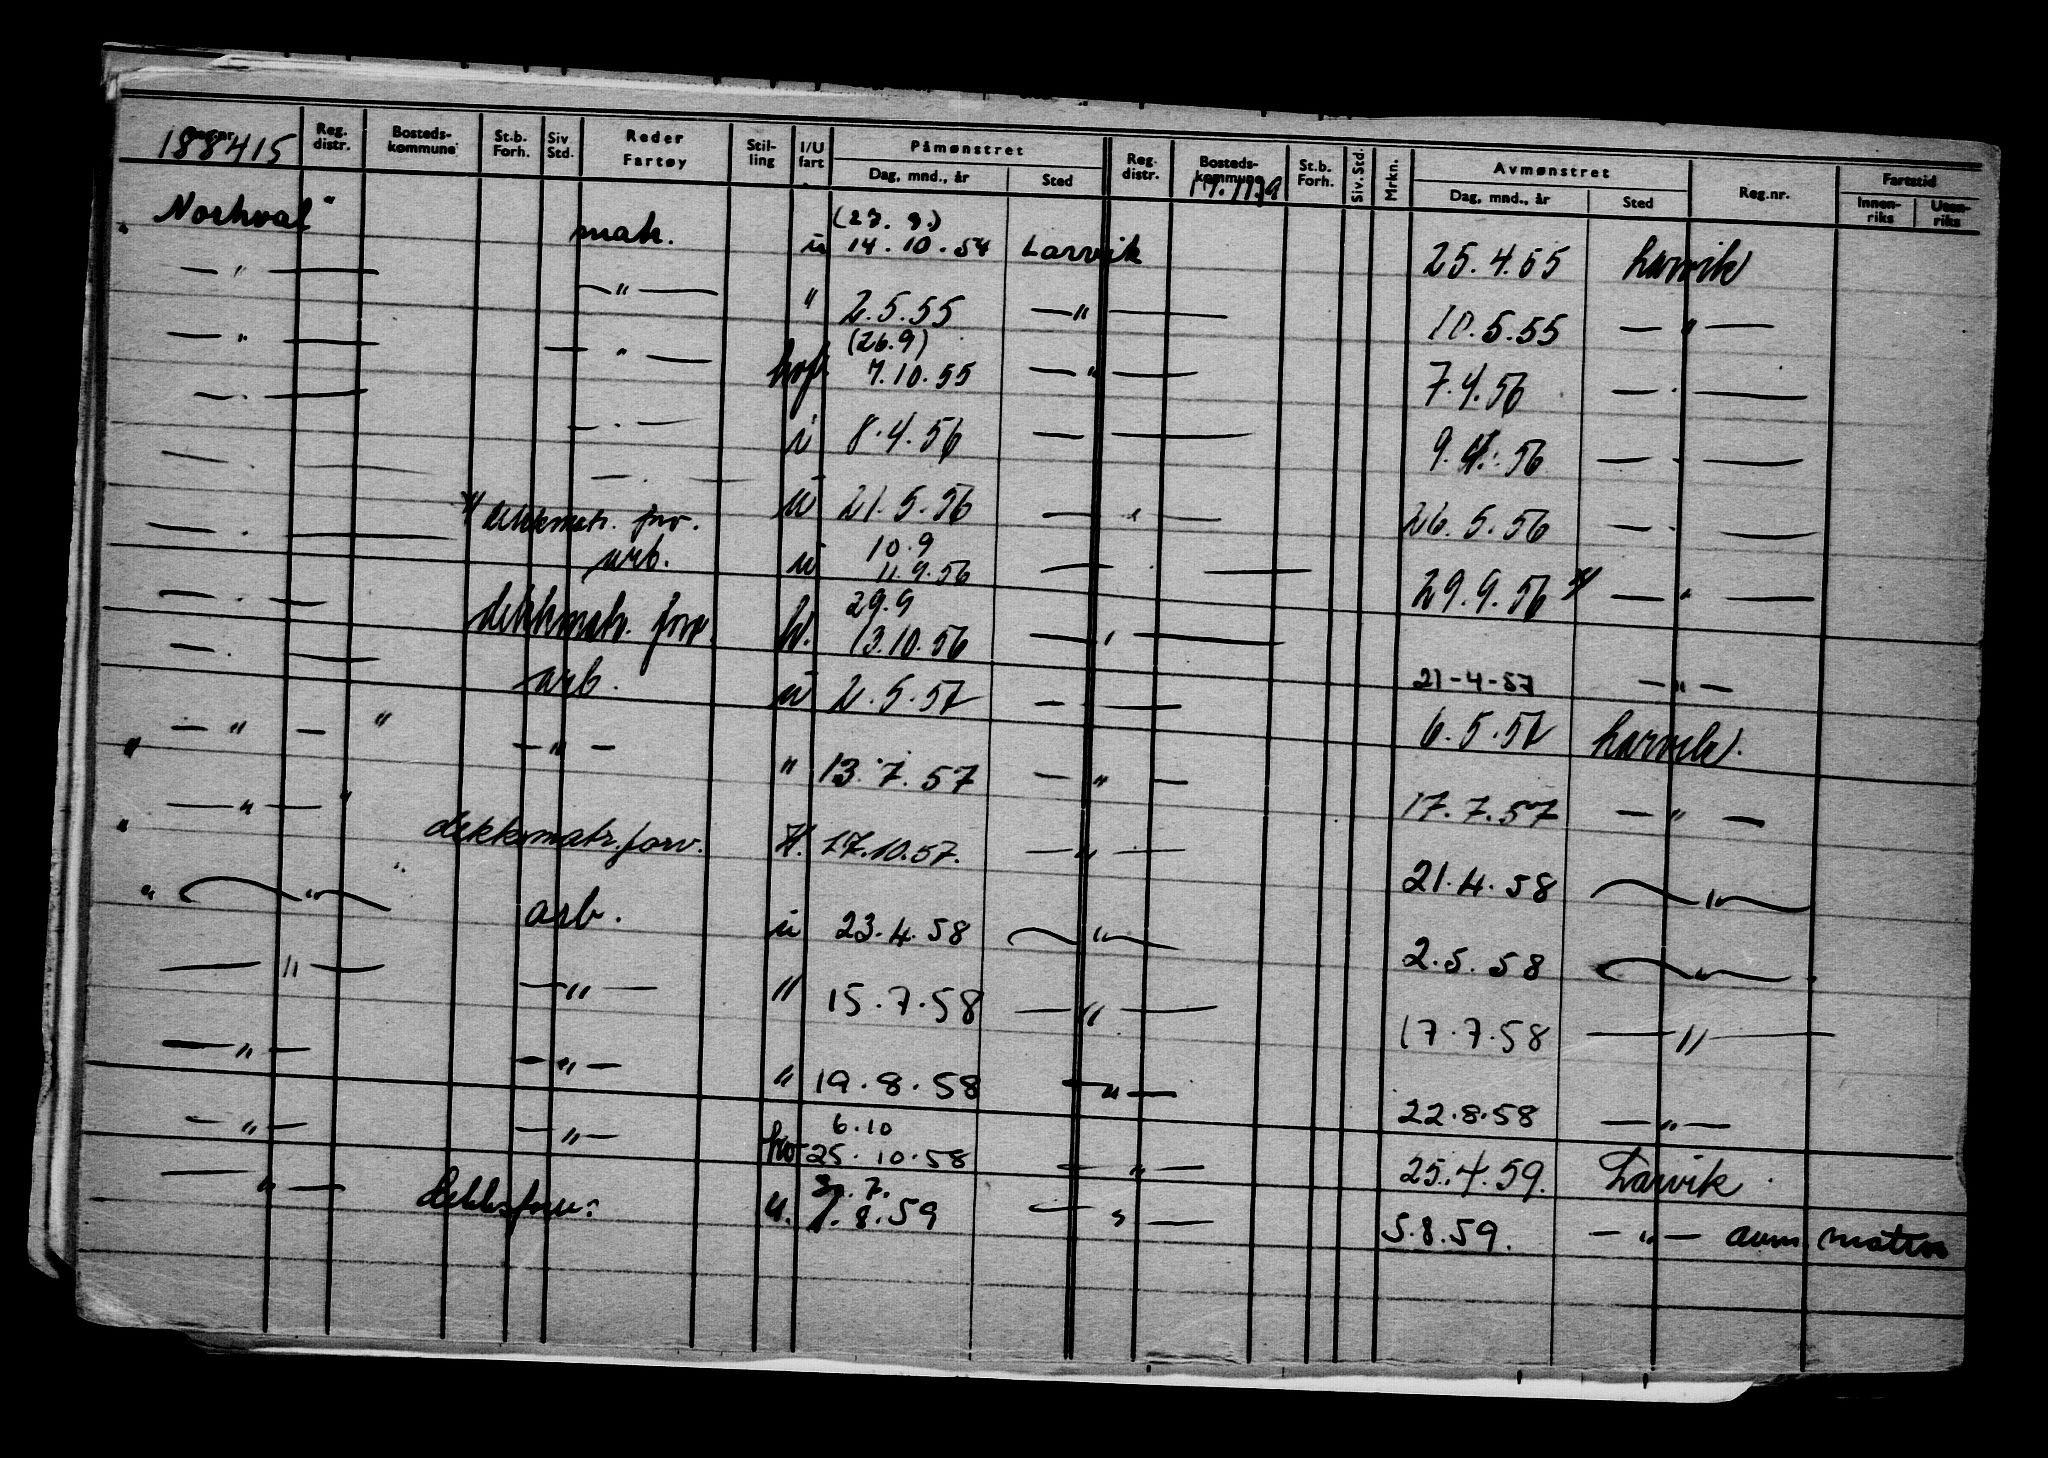 Reg.nr. Reg. distr. Bosteds-kommune St.b. Forh. Siv Std. Reder Fartøy Stil-ling I/U fart Påmønstret Dag, mnd., år Sted Reg. distr. Bosteds-kommune St.b. Forh. Siv. Std. Mrkn. Avmønstret Dag, mnd., år Sted Reg.nr. Fartstid Innen-riks Uten-riks
188415
"Norhval" matr. u (27.9.) 14.10.54 Larvik 25.4.55 Larvik
— " — — " — " 2.5.55 — " — 10.5.55 — " —
— " — — " — hvf. (26.9) 7.10.55 — " — 7.4.56 — " —
— " — — " — u 8.4.56 — — 9.4.56 — " —
— " — — " — u 21.5.56 — " — 26.5.56 — " —
x/ dekkmatr. forv.
— " — arb. u 10.9 11.9.56 — " — 29.9.56 x/ — " —
— " — dekkmatr. forv. hv. 29.9 13.10.56 — " — 21-4-57 — " —
— " — arb. u 2.5.57 — — 6.5.57 Larvik.
" — " — " — " — " 13.7.57 — " — 17.7.57 — " —
" — " — " dekksmatr. forv. H. 17.10.57. — " — 21.4.58 — " —
" — " — arb. u 23.4.58 — " — 2.5.58 — " —
— " — — " — " 15.7.58 — " — 17.7.58 — " —
— " — — " — " 19.8.58 — " — 22.8.58 — " —
— " — — " — hv 6.10 25.10.58 — " — 25.4.59. Larvik
— " — dekksforv: u. 8.59 — " — 5.8.59. — " — avm.